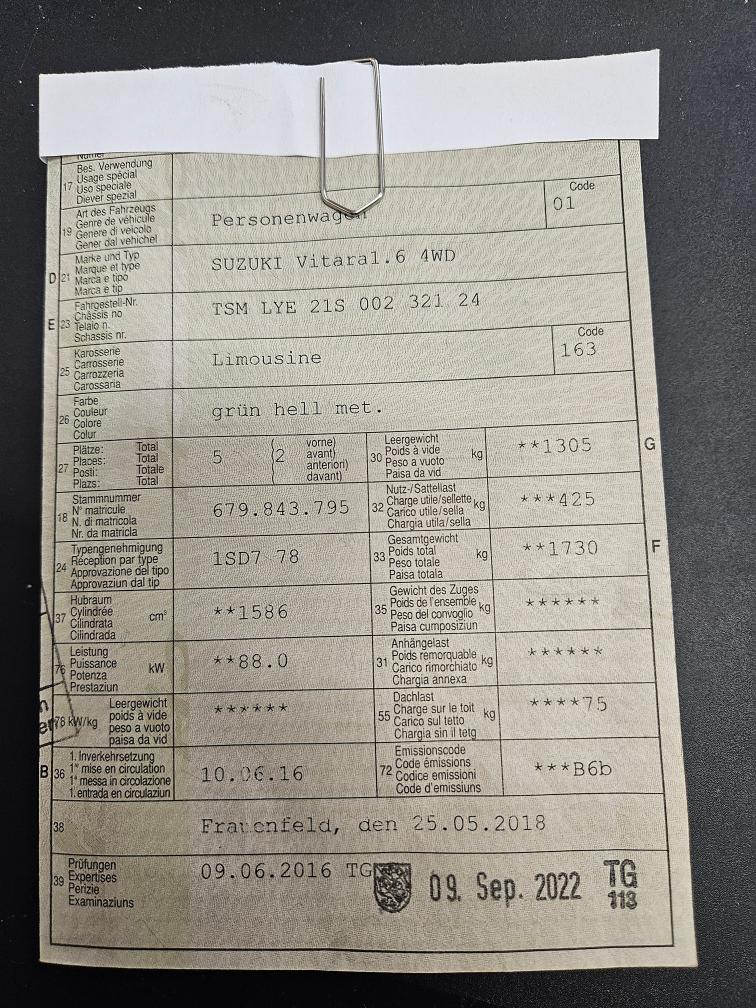 17 Bes. Verwendung
Usage spécial
Uso speciale
Diever spezial
19 Art des Fahrzeugs
Genre de véhicule
Genere di veicolo
Gener dal vehichel
Personenwagen
Code
01
D 21 Marke und Typ
Marque et type
Marca e tipo
Marca e tip
SUZUKI Vitara1.6 4WD
E 23 Fahrgestell-Nr.
Châssis no
Telaio n.
Schassis nr.
TSM LYE 21S 002 321 24
25 Karosserie
Carrosserie
Carrozzeria
Carossaria
Limousine
Code
163
26 Farbe
Couleur
Colore
Colur
grün hell met.
27 Plätze: Total
Places: Total
Posti: Totale
Plazs: Total
5 (2 vorne)
avant)
anteriori)
davant)
30 Leergewicht
Poids à vide
Peso a vuoto
Paisa da vid
kg
**1305
G
18 Stammnummer
N° matricule
N. di matricola
Nr. da matricla
679.843.795
32 Nutz-/Sattellast
Charge utile/sellette
Carico utile/sella
Chargia utila/sella
kg
***425
24 Typengenehmigung
Réception par type
Approvazione del tipo
Approvaziun dal tip
1SD7 78
33 Gesamtgewicht
Poids total
Peso totale
Paisa totala
kg
**1730
F
37 Hubraum
Cylindrée
Cilindrata
Cilindrada
cm³
**1586
35 Gewicht des Zuges
Poids de l'ensemble
Peso del convoglio
Paisa cumposiziun
kg
******
76 Leistung
Puissance
Potenza
Prestaziun
kW
**88.0
31 Anhängelast
Poids remorquable
Carico rimorchiato
Chargia annexa
kg
******
78 kW/kg Leergewicht
poids à vide
peso a vuoto
paisa da vid
******
55 Dachlast
Charge sur le toit
Carico sul tetto
Chargia sin il tetg
kg
****75
B 36 1. Inverkehrsetzung
1re mise en circulation
1a messa in circolazione
1. entrada en circulaziun
10.06.16
72 Emissionscode
Code émissions
Codice emissioni
Code d'emissiuns
***B6b
38 Frauenfeld, den 25.05.2018
39 Prüfungen
Expertises
Perizie
Examinaziuns
09.06.2016 TG
09. Sep. 2022 TG
113